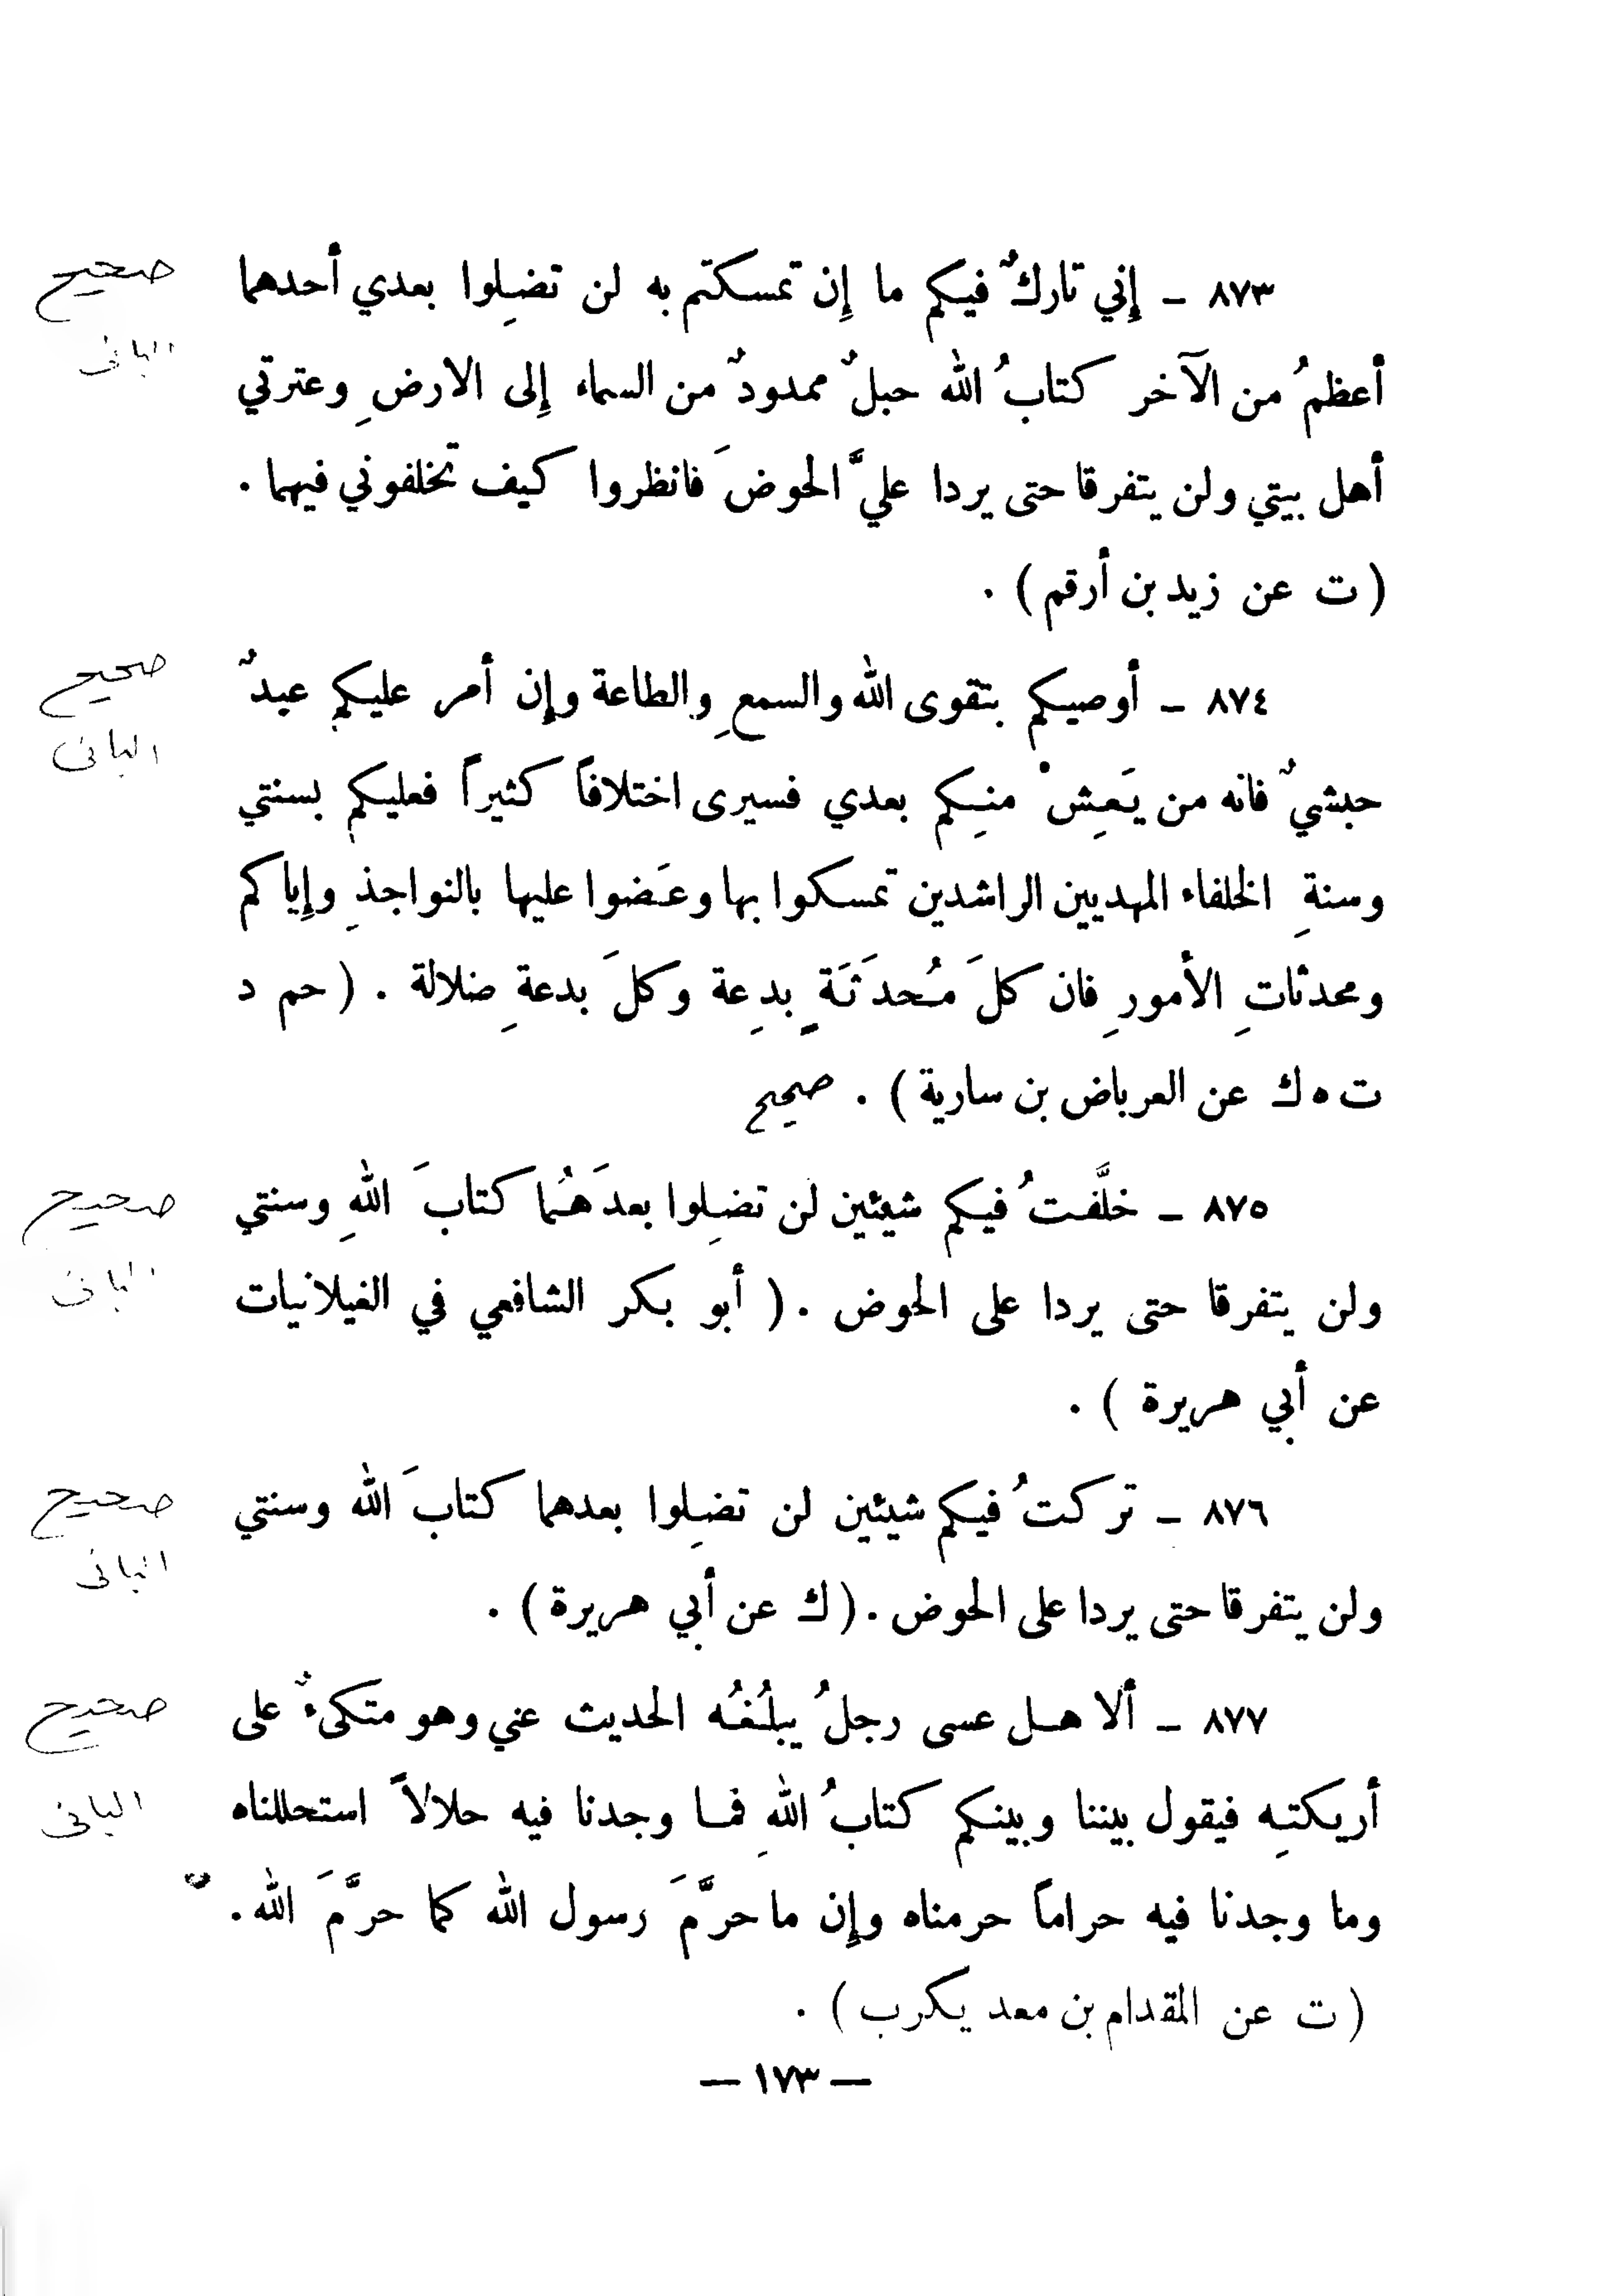 ٨٧٣ ـ إني تاركٌ فيكم ما إن تمسكتم به لن تضلِوا بعدي أحدهما
صحيح
البانى
أعظمُ من الآخر كتابُ الله حبلٌ ممدودٌ من السماء إلى الارضِ وعترتي
أهل بيتي ولن يتفرقا حتى يردا عليَّ الحوضَ فانظروا كيف تخلفوني فيهما .
( ت عن زيد بن أرقم ) .
٨٧٤ ـ أوصيكم بتقوى الله والسمعِ والطاعة وإن أمر عليكم عبدٌ
صحيح
البانى
حبشيٌ فانه من يَعِشْ منِكم بعدي فسيرى اختلافاً كثيراً فعليكم بسنتي
وسنةِ الخلفاء المهديين الراشدين تمسكوا بها وعَضوا عليها بالنواجذِ وإياكم
ومحدثاتِ الأمورِ فان كلَ مُحدَثَةٍ بدِعة وكلَ بدعةِ ضلالة . ( حم د
ت ه ك عن العرباض بن سارية ) . صحيح
٨٧٥ ـ خلَّفتُ فيكم شيئين لن تضلِوا بعدَهُما كتابَ اللهِ وسنتي
صحيح
البانى
ولن يتفرقا حتى يردا على الحوض . ( أبو بكر الشافعي في الغيلانيات
عن أبي هريرة ) .
٨٧٦ ـ تركتُ فيكم شيئين لن تضلِوا بعدهما كتابَ الله وسنتي
صحيح
البانى
ولن يتفرقا حتى يردا على الحوض . ( ك عن أبي هريرة ) .
٨٧٧ ـ ألا هل عسى رجلُ يبلُغُه الحديث عني وهو متكىءٌ على
صحيح
البانى
أريكتهِ فيقول بيننا وبينكم كتابُ اللهِ فما وجدنا فيه حلالاً استحللناه
وما وجدنا فيه حراماً حرمناه وإن ما حرَّمَ رسول الله كما حرَّمَ الله .
( ت عن المقدام بن معد يكرب ) .
— ١٧٣ —